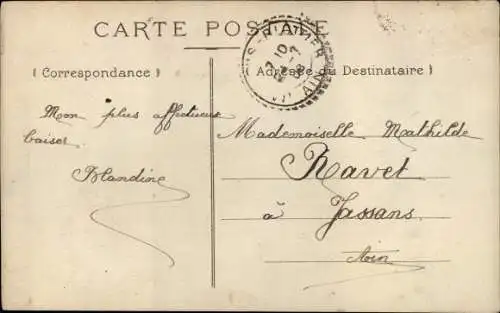 CARTE POSTALE
( Correspondance )
Adresse du Destinataire )
AIN
Mon plus affectueux
baiser
Blandine
Mademoiselle Mathilde
Ravet
à Jassans
Ain